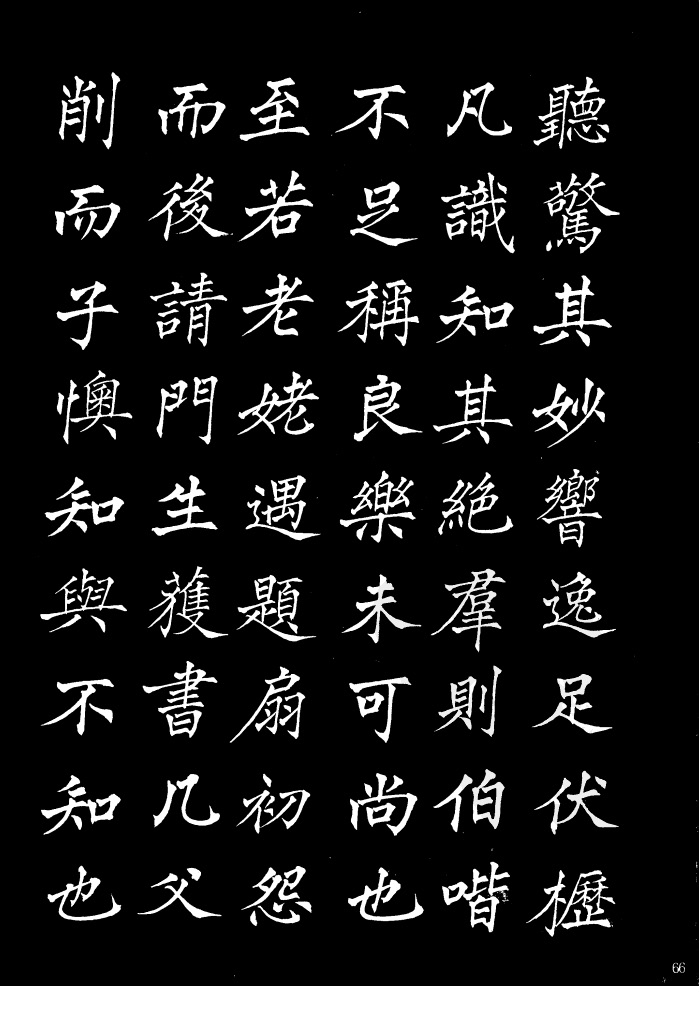 聽驚其妙響逸足伏櫪
凡識知其絕羣則伯喈
不足稱良樂未可尚也
至若老姥遇題扇初怨
而後請門生獲書几父
削而子懊知與不知也
66